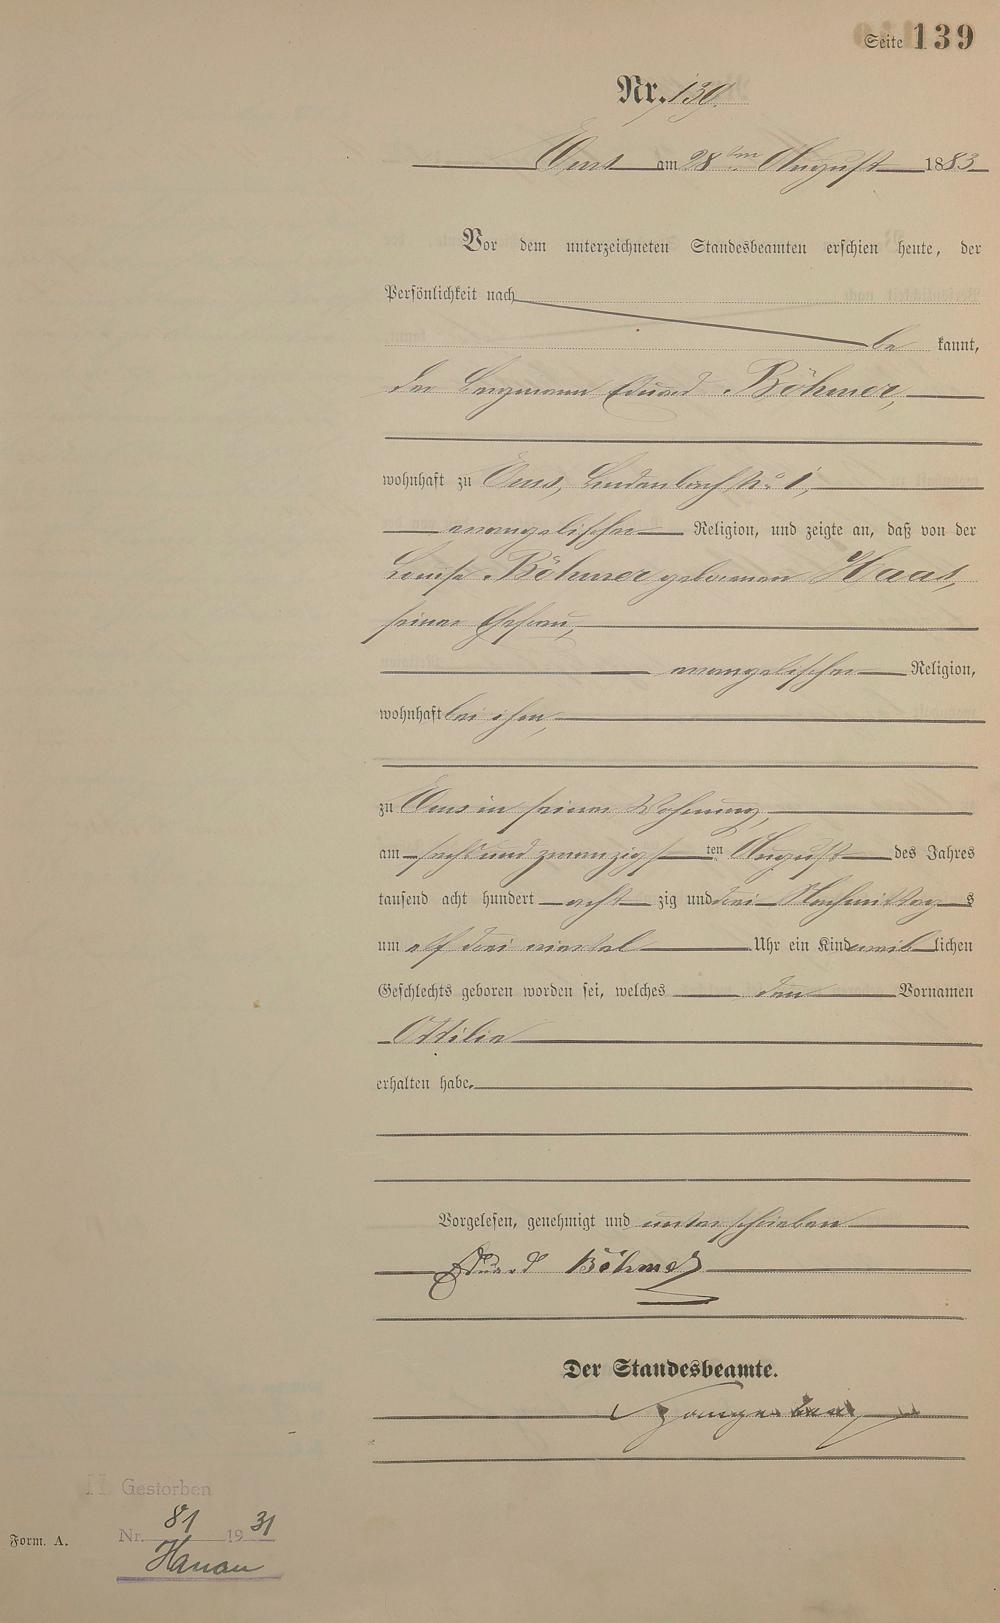 Seite 139
Nr. 139.
Ems am 28ten August 1883
Vor dem unterzeichneten Standesbeamten erschien heute, der
Persönlichkeit nach
be kannt,
der Bergmann Eduard Böhmer,
wohnhaft zu Ems, Lindenbach No 1,
evangelischer Religion, und zeigte an, daß von der
Louise Böhmer geborenen Haas,
seiner Ehefrau,
evangelischer Religion,
wohnhaft bei ihm,
zu Ems in seiner Wohnung,
am sechs und zwanzigs ten August des Jahres
tausend acht hundert acht zig und drei Nachmittag s
um elf drei viertel Uhr ein Kind weib lichen
Geschlechts geboren worden sei, welches den Vornamen
Ottilie
erhalten habe.
Vorgelesen, genehmigt und unterschrieben
Eduard Böhmer
Der Standesbeamte.
H Gestorben
Nr. 81 1931
Hanau
Form. A.